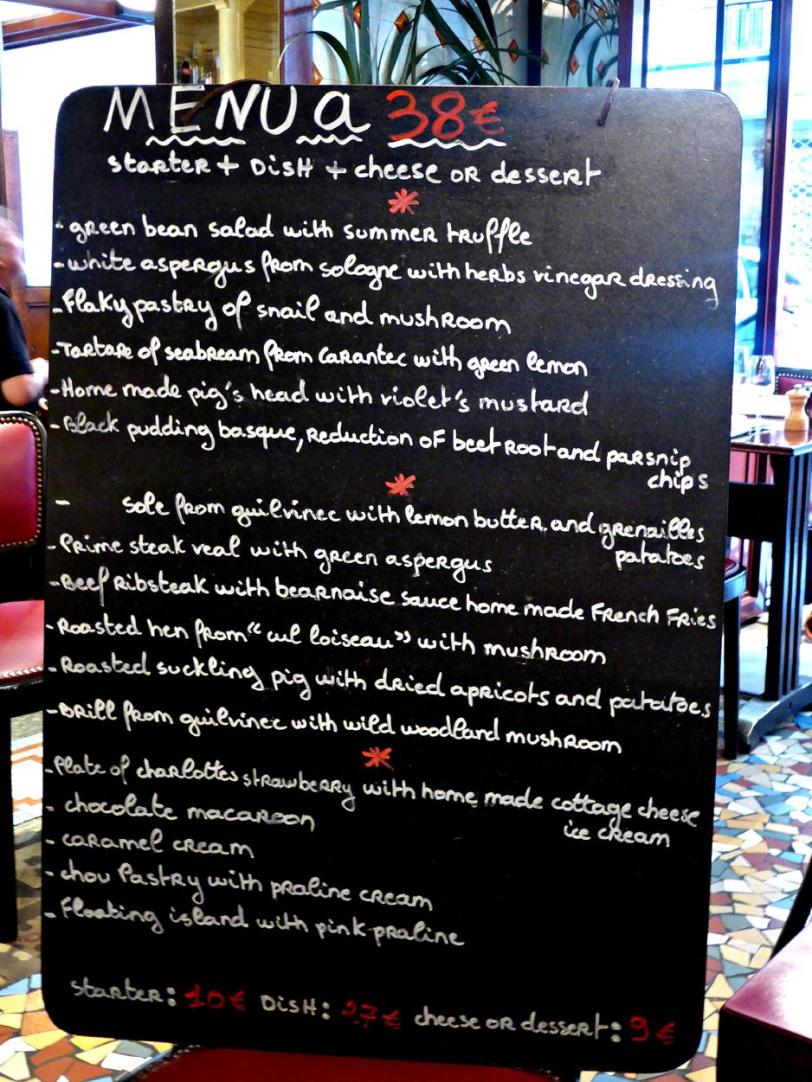 MENU a 38€
starter + DISH + cheese OR dessert
- green bean salad with summer truffle
- white aspergus from sologne with herbs vinegar dressing
- Flaky pastry of snail and mushroom
- Tartare of seabream from carantec with green lemon
- Home made pig's head with violet's mustard
- Black pudding basque, reduction of beetroot and parsnip
chips
- sole from guilvinec with lemon butter and grenailles
patatoes
- Prime steak veal with green aspergus
- Beef Ribsteak with bearnaise sauce home made French Fries
- Roasted hen from "cul loiseau" with mushroom
- Roasted suckling pig with dried apricots and patatoes
- Brill from guilvinec with wild woodland mushroom
- Plate of charlottes strawberry with home made cottage cheese
ice cream
- chocolate macaroon
- caramel cream
- chou Pastry with praline cream
- Floating island with pink praline
starter: 10€ DISH: 27€ cheese or dessert: 9€